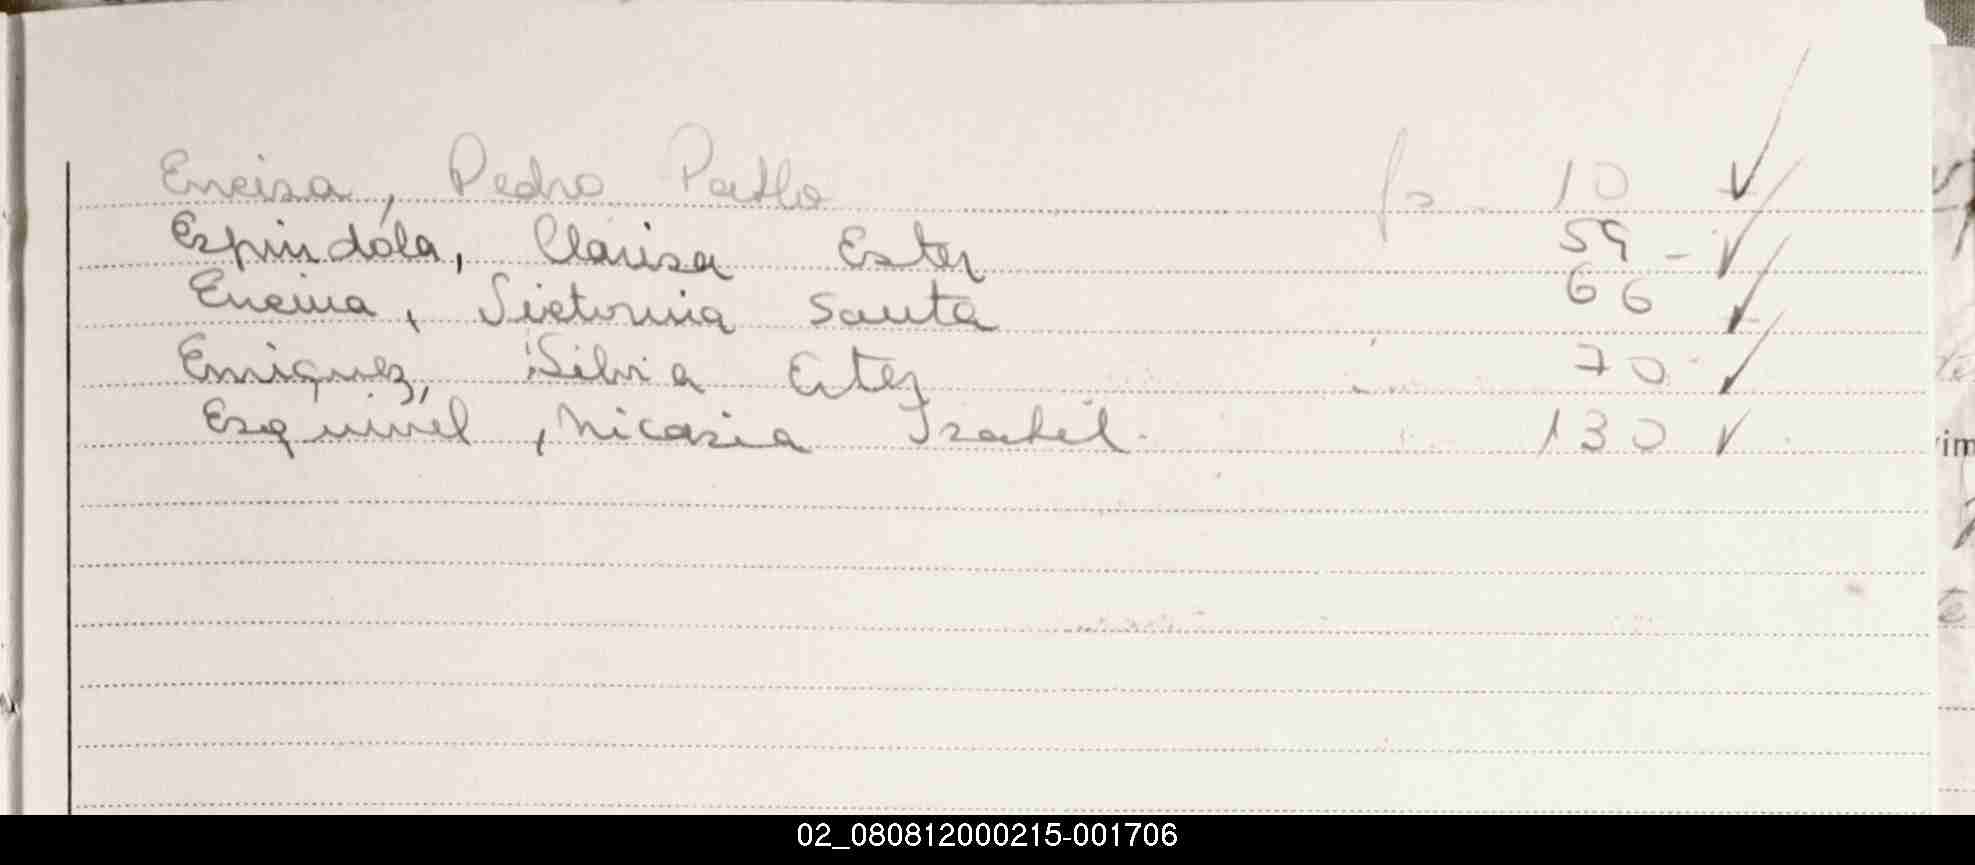 Enciza, Pedro Pablo fs - 10
Espindóla, Clarisa Ester 59 -
Encina, Victorina Santa 66
Enriquez, Silvia Ester 70
Esquivel, Nicasia Izabel. 130
im
te
02_080812000215-001706